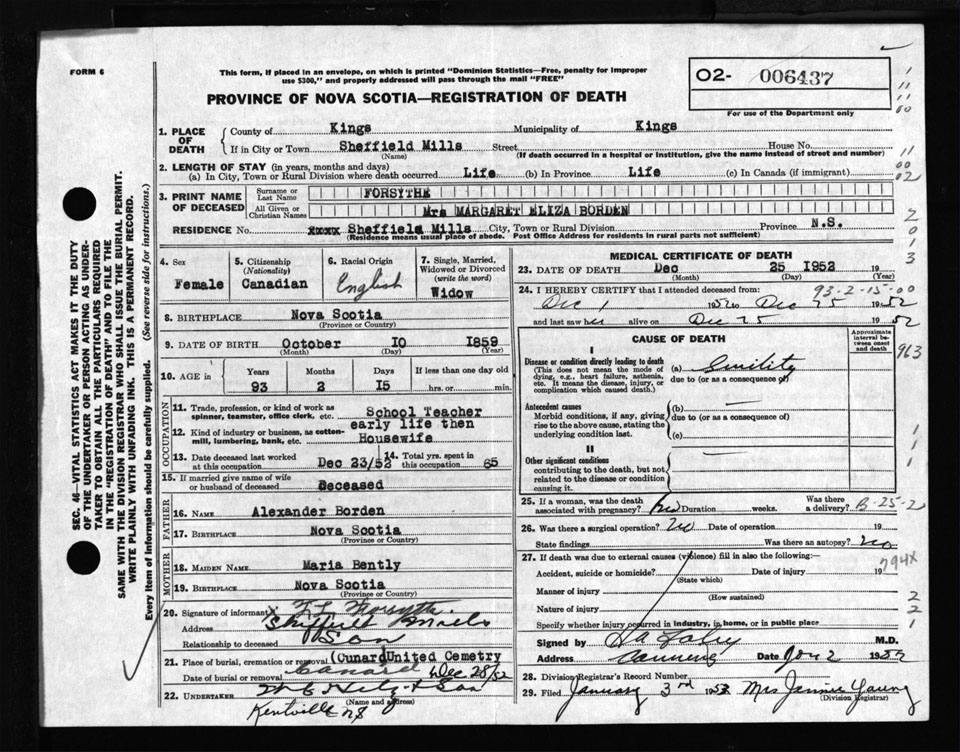 FORM 6
This form, if placed in an envelope, on which is printed "Dominion Statistics—Free, penalty for improper
use $300," and properly addressed will pass through the mail "FREE"
O2- 006437
For use of the Department only
PROVINCE OF NOVA SCOTIA—REGISTRATION OF DEATH
1. PLACE OF DEATH
County of Kings Municipality of Kings
If in City or Town Sheffield Mills Street House No.
(Name) (If death occurred in a hospital or institution, give the name instead of street and number)
2. LENGTH OF STAY (in years, months and days)
(a) In City, Town or Rural Division where death occurred Life (b) In Province Life (c) In Canada (if immigrant)
3. PRINT NAME OF DECEASED
Surname or Last Name FORSYTHE
All Given or Christian Names Mrs MARGARET ELIZA BORDEN
RESIDENCE No. xxxx Sheffield Mills City, Town or Rural Division Province N.S.
(Residence means usual place of abode. Post Office Address for residents in rural parts not sufficient)
4. Sex
Female
5. Citizenship
(Nationality)
Canadian
6. Racial Origin
English
7. Single, Married,
Widowed or Divorced
(write the word)
Widow
8. BIRTHPLACE Nova Scotia
(Province or Country)
9. DATE OF BIRTH October 10 1859
(Month) (Day) (Year)
10. AGE in
Years Months Days If less than one day old
93 2 15 hrs. or min.
OCCUPATION
11. Trade, profession, or kind of work as
spinner, teamster, office clerk, etc. School Teacher
early life then
12. Kind of industry or business, as cotton-
mill, lumbering, bank, etc. Housewife
13. Date deceased last worked
at this occupation Dec 23/52
14. Total yrs. spent in
this occupation 65
15. If married give name of wife
or husband of deceased Deceased
FATHER
16. Name Alexander Borden
17. BIRTHPLACE Nova Scotia
(Province or Country)
MOTHER
18. MAIDEN NAME Maria Bently
19. BIRTHPLACE Nova Scotia
(Province or Country)
20. Signature of informant Forsythe
Address Sheffield Mills
Relationship to deceased Son
21. Place of burial, cremation or removal (Cunard United Cemetry
Date of burial or removal Canard Dec 28/52
22. UNDERTAKER & Son
(Name and address)
Kentville NS
MEDICAL CERTIFICATE OF DEATH
23. DATE OF DEATH Dec 25 1952 19
(Month) (Day) (Year)
24. I HEREBY CERTIFY that I attended deceased from: 93-2-15-00
Dec 1 1952 to Dec 25 1952
and last saw her alive on Dec 25 1952
CAUSE OF DEATH
Approximate
interval be-
tween onset
and death
963
I
Disease or condition directly leading to death
(This does not mean the mode of
dying, e.g., heart failure, asthenia,
etc. It means the disease, injury, or
complication which caused death.)
(a) Senility
due to (or as a consequence of)
Antecedent causes
Morbid conditions, if any, giving
rise to the above cause, stating the
underlying condition last.
(b) —
due to (or as a consequence of)
(c)
II
Other significant conditions
contributing to the death, but not
related to the disease or condition
causing it.
25. If a woman, was the death
associated with pregnancy? No Duration weeks. Was there
a delivery? B-25-2
26. Was there a surgical operation? No Date of operation 19
State findings Was there an autopsy? No
27. If death was due to external causes (violence) fill in also the following:—
794X
Accident, suicide or homicide? Date of injury 19
(State which)
Manner of injury
(How sustained)
Nature of injury
Specify whether injury occurred in industry, in home, or in public place
Signed by M.D.
Address Canning Date Jan 2 195
28. Division Registrar's Record Number
29. Filed January 3rd 1953 Mrs Jennie Young
(Division Registrar)
SEC. 46—VITAL STATISTICS ACT MAKES IT THE DUTY
OF THE UNDERTAKER OR PERSON ACTING AS UNDER-
TAKER TO OBTAIN ALL THE PARTICULARS REQUIRED
IN THE "REGISTRATION OF DEATH" AND TO FILE THE
SAME WITH THE DIVISION REGISTRAR WHO SHALL ISSUE THE BURIAL PERMIT.
WRITE PLAINLY WITH UNFADING INK. THIS IS A PERMANENT RECORD.
Every item of information should be carefully supplied. (See reverse side for instructions.)